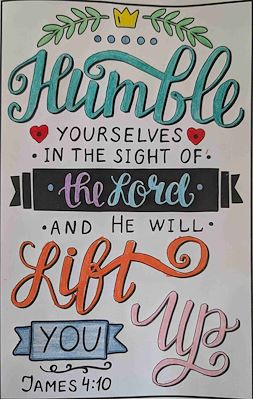 Humble
YOURSELVES
· IN THE SIGHT OF ·
· the Lord ·
· AND HE WILL ·
Lift
Up
YOU
JAMES 4:10